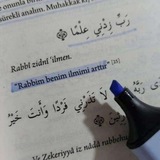 sürekli analım. Muhakkak k
رَبِّ زِدْنِي عِلْمًا
Rabbî zidnî 'ilmen.
"Rabbim benim ilmimi arttır" [21]
رَبِّ لَا تَذَرْنِي فَرْدًا وَأَنتَ خَيْرُ
Ve Zekeriyyâ iz nâdâ rabbehu